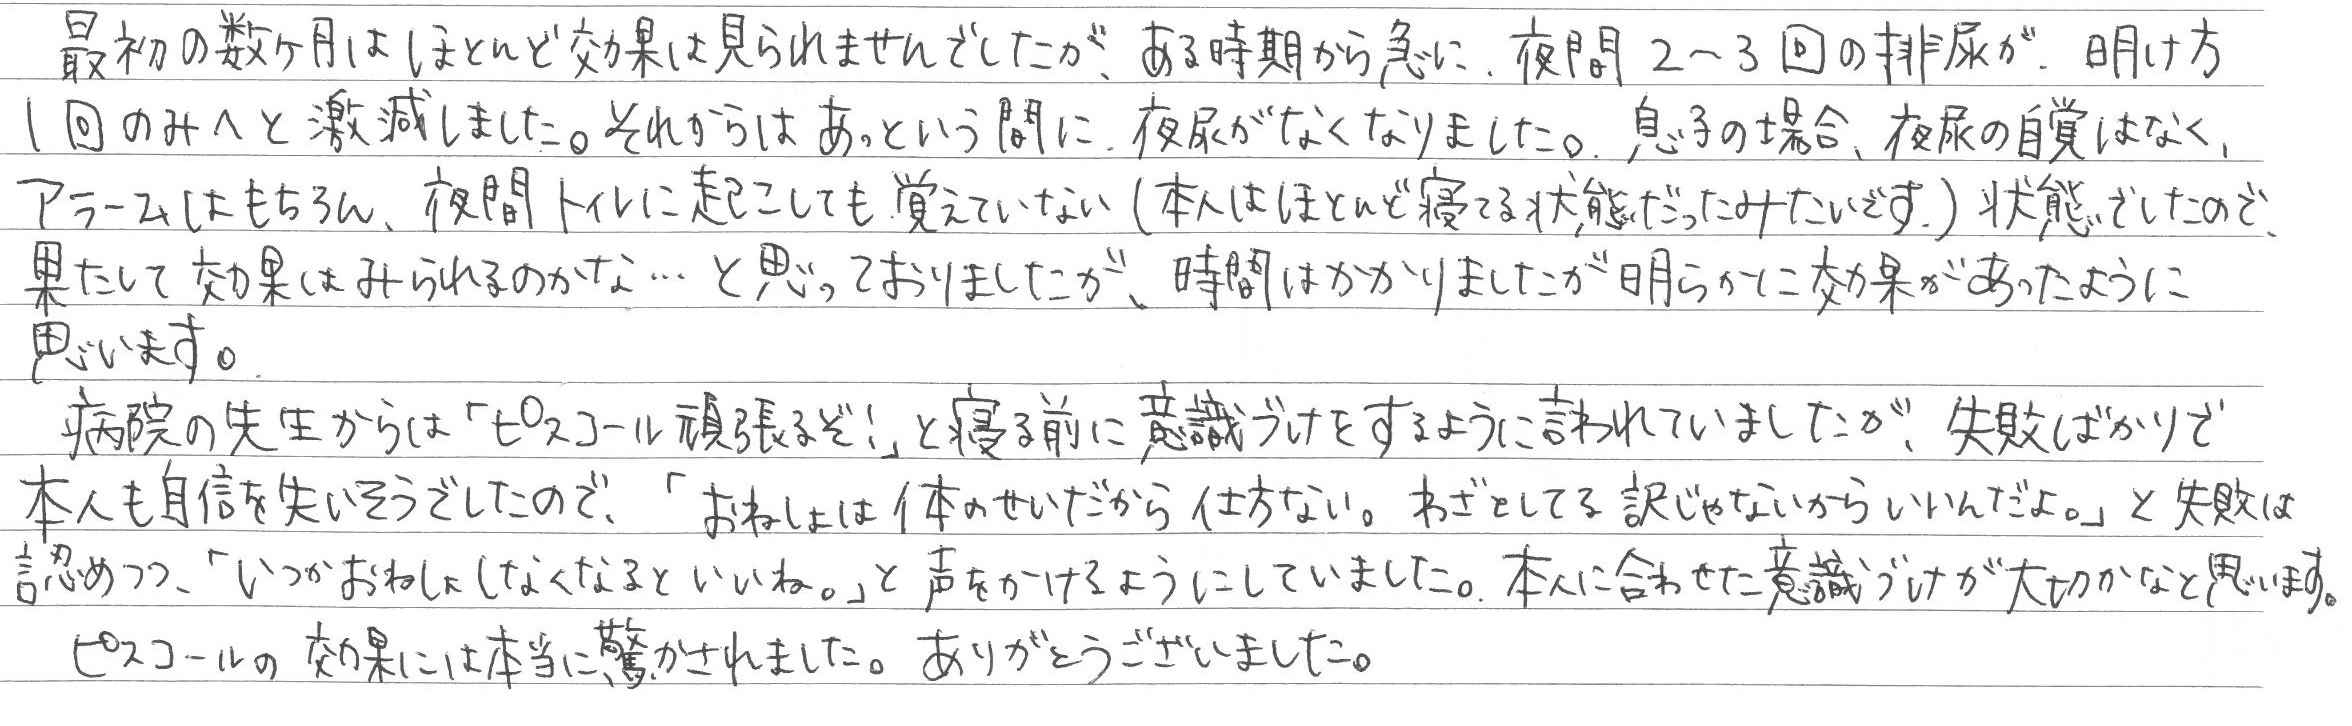 最初の数ケ月はほとんど効果は見られませんでしたが、ある時期から急に、夜間2〜3回の排尿が、明け方
1回のみへと激減しました。それからはあっという間に、夜尿がなくなりました。息子の場合、夜尿の自覚はなく、
アラームはもちろん、夜間トイレに起こしても覚えていない(本人はほとんど寝てる状態だったみたいです。)状態でしたので、
果たして効果はみられるのかな…と思っておりましたが、時間はかかりましたが明らかに効果があったように
思います。
病院の先生からは「ピスコール頑張るぞ!」と寝る前に意識づけをするように言われていましたが、失敗ばかりで
本人も自信を失いそうでしたので、「おねしょは体のせいだから仕方ない。わざとしてる訳じゃないからいいんだよ。」と失敗は
認めつつ、「いつかおねしょしなくなるといいね。」と声をかけるようにしていました。本人に合わせた意識づけが大切かなと思います。
ピスコールの効果には本当に驚かされました。ありがとうございました。